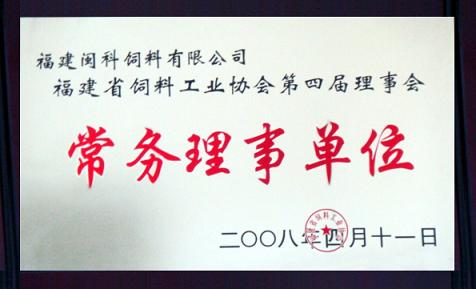 福建闽科饲料有限公司
福建省饲料工业协会第四届理事会
常务理事单位
二〇〇八年四月十一日
福建省饲料工业协会